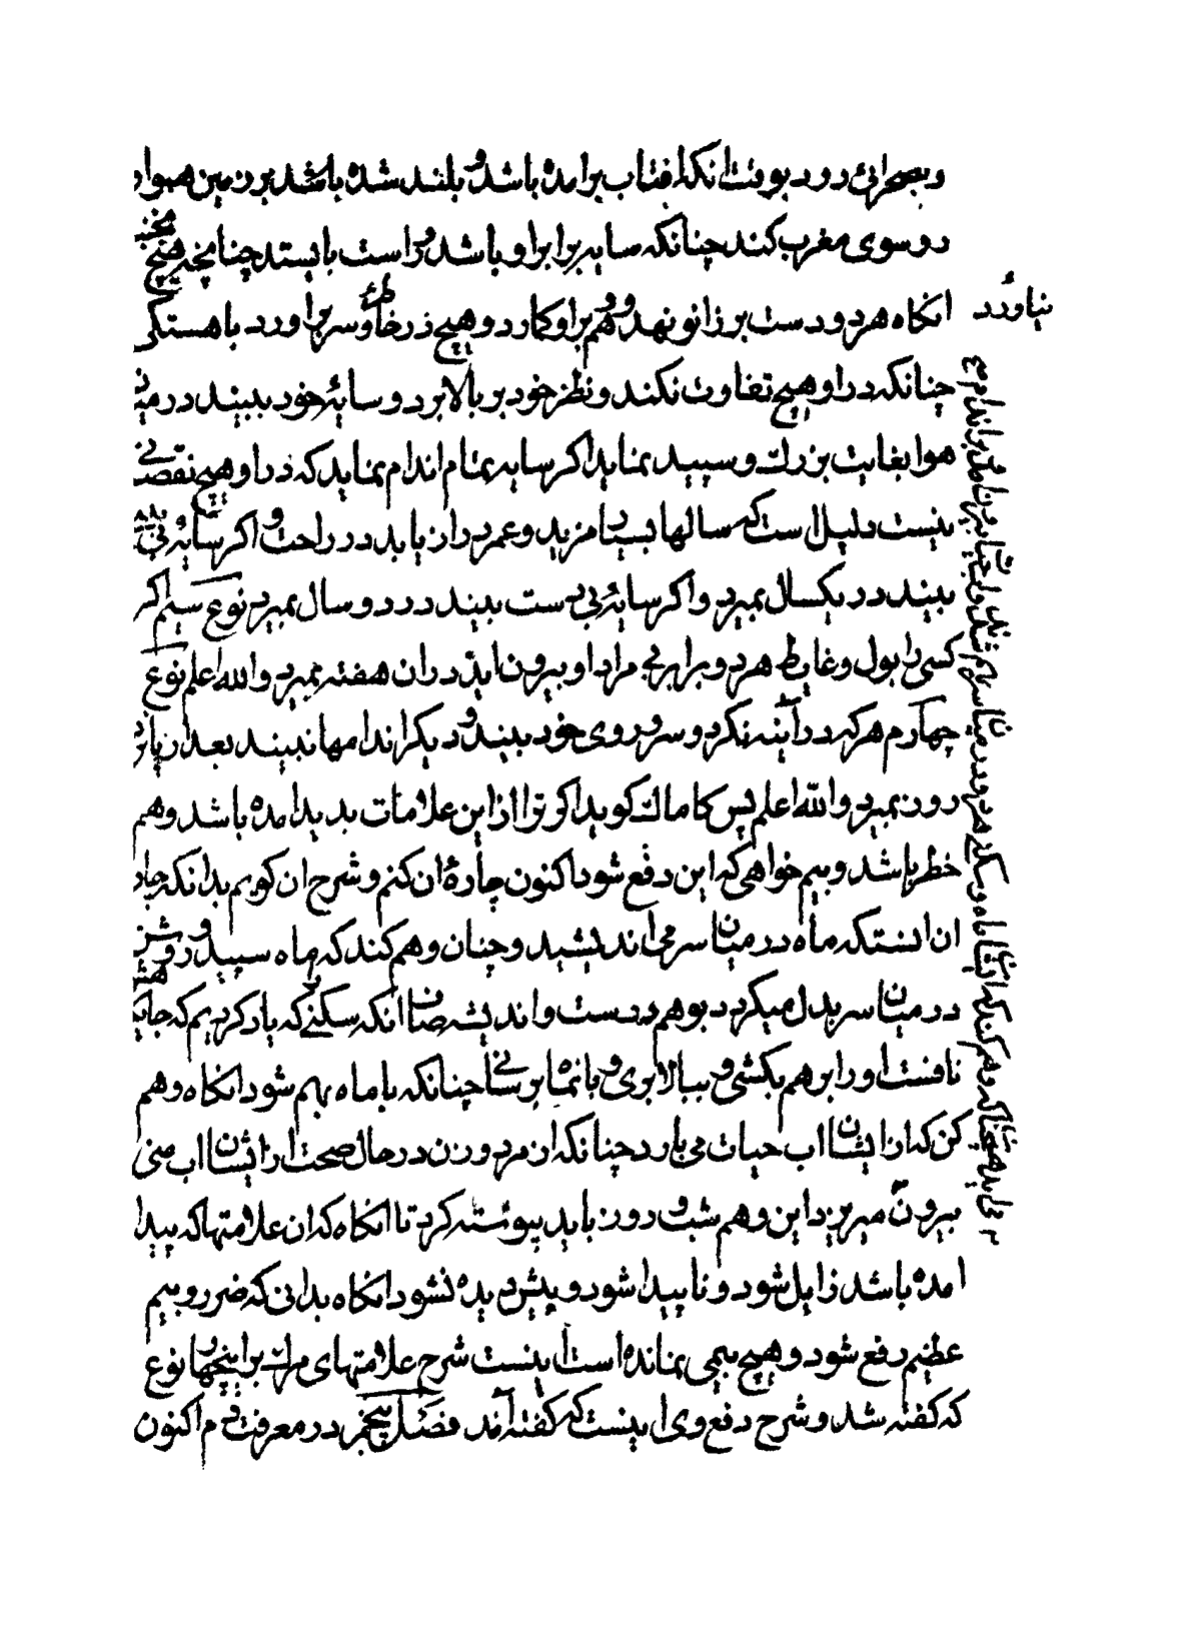 وبصحرائی رود بوقت انکه افتاب برامده باشد و بلند شده باشد بر زمین هموار
روسوی مغرب کند چنانکه سایه برابر او باشد و راست بایستد چنانچه هیچ نجنبد
انکاه هر دو دست بر زانو نهد و وهم بر او کمارد و هیچ در خاطر نیاورد و سر براورد باهستکی
چنانکه در او هیچ تفاوت نکند و نظر خود بر بالا برد و سایهٔ خود ببیند در میان
هوا بغایت بزرك و سپید بنماید اکر سایه بتمام اندام نماید که در او هیچ نقصانی
نیست دلیل است که سالها بسیار مزید و عمر دراز یابد در راحت و اکر سایهٔ بی
ببیند در یکسال بمیرد و اکر سایهٔ بی دست ببیند در دو سال بمیرد نوع سیم اکر
کسی را بول و غایط هر دو برابر بی مراد او بیرون اید در ان هفته بمیرد والله اعلم نوع
چهارم هرکه در آینه نکرد و سر و روی خود ببیند و دیکر اندامها نبیند بعد از پانزده
روز بمیرد والله اعلم پس کاماك کوید اکر ترا از این علامات پدید امده باشد و هم
خطر باشد و بیم خواهی که این دفع شود اکنون چارهٔ ان کنم و شرح ان کویم بدانکه چاره
ان انستکه ماه در میان سر می اندیشید و چنان وهم کند که ماه سپید و روشن
در میان سر بدل میکردد بوهم درست و اندیشه صافی انکه سکنی که یاد کردیم که جایش
نافست او را بر هم بکشی و ببالا بری و بانماه برسانی چنانکه با ماه بهم شود انکاه وهم
کن که از ایشان اب حیات می بارد چنانکه از مرد و زن در حال صحبت از ایشان اب منی
بیرون میریزد این وهم شب و روز باید پیوسته کرد تا انکاه که ان علامتها که پیدا
امده باشد زایل شود و ناپیدا شود و پیش دیده نشود انکاه بدانی که ضرر و بیم
عظیم دفع شود و هیچ بیمی نمانده است اینست شرح علامتهای مرك بر این چهار نوع
که کفته شد و شرح دفع وی اینست که کفته آمد فصل پنجم در معرفت وهم اکنون